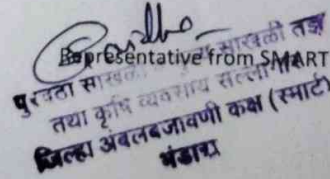 Representative from SMART
पुरवठा साखळी मूल्य साखळी तज्ञ
तथा कृषि व्यवसाय सल्लागार
जिल्हा अंबलबजावणी कक्ष (स्मार्ट)
भंडारा